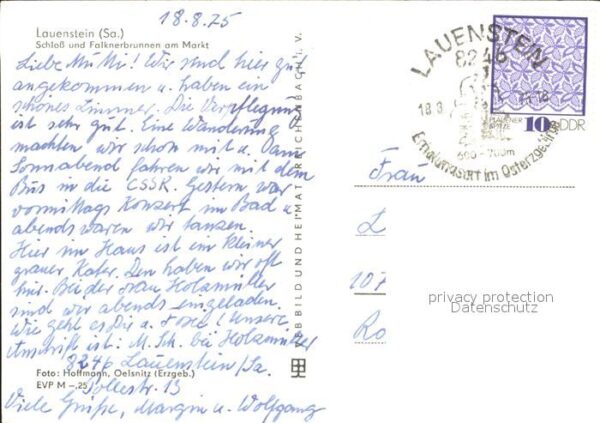 18.8.75
Lauenstein (Sa.)
Schloß und Falknerbrunnen am Markt
Liebe Mutti! Wir sind hier gut
angekommen u. haben ein
schönes Zimmer. Die Verpflegung
ist sehr gut. Eine Wanderung
machten wir schon mit u. am
Sonnabend fahren wir mit dem
Bus in die CSSR. Gestern war
vormittags Konzert im Bad u.
abends waren wir tanzen.
Hier im Haus ist ein kleiner
grauer Kater. Den haben wir oft
hier. Bei der Frau Holzmüller
sind wir abends eingeladen.
Wie geht es Dir u. ? Unsere
Anschrift ist: M. Sch. bei Holzmüller
8246 Lauenstein/Sa.
Foto: Hoffmann, Oelsnitz (Erzgeb.)
EVP M –.25
13
Viele Grüße, Margin u. Wolfgang
VEB BILD UND HEIMAT REICHENBACH i. V.
LAUENSTEIN
8246
18.8.
-18
600-700m
Erholungsort im Osterzgebirge
PLAUENER
SPITZE
10 DDR
Frau
L
107
Ro
privacy protection
Datenschutz